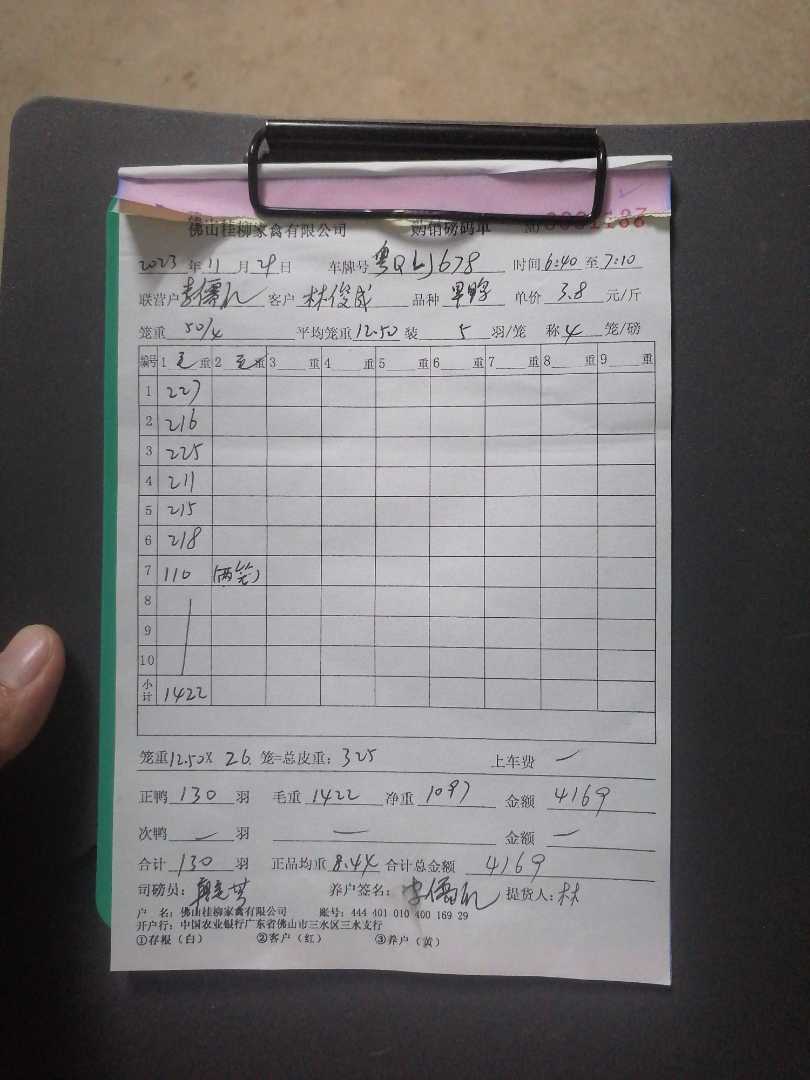 佛山桂柳家禽有限公司 购销磅码单 №
2023 年 11 月 29 日 车牌号 粤QLJ678 时间 6:40 至 7:10
联营户 客户 林俊成 品种 单价 3.8 元/斤
笼重 50/4 平均笼重 12.50 装 5 羽/笼 称 4 笼/磅
编号 1 毛 重 2 重 3 重 4 重 5 重 6 重 7 重 8 重 9 重
1 227
2 216
3 225
4 211
5 215
6 218
7 110 (两笼)
8
9
10
小计 1422
笼重 12.50 X 26. 笼=总皮重: 325 上车费 一
正鸭 130 羽 毛重 1422 净重 1097 金额 4169
次鸭 一 羽 一 金额 一
合计 130 羽 正品均重 8.44 合计总金额 4169
司磅员: 养户签名: 提货人: 林
户 名: 佛山桂柳家禽有限公司 账号: 444 401 010 400 169 29
开户行: 中国农业银行广东省佛山市三水区三水支行
①存根（白） ②客户（红） ③养户（黄）